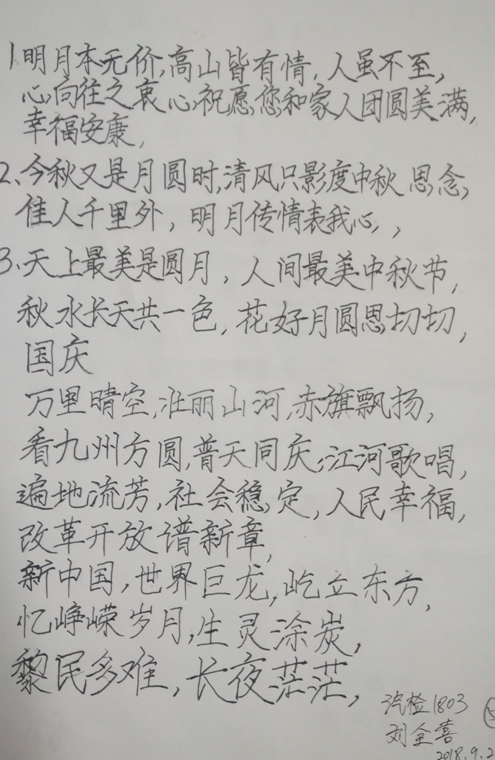 1.明月本无价,高山皆有情,人虽不至,
心向往之衷心祝愿您和家人团圆美满,
幸福安康,
2、今秋又是月圆时,清风只影度中秋思念,
佳人千里外,明月传情表我心,,
3、天上最美是圆月,人间最美中秋节,
秋水长天共一色,花好月圆思切切,
国庆
万里晴空,壮丽山河,赤旗飘扬,
看九州方圆,普天同庆;江河歌唱,
遍地流芳,社会稳,定,人民幸福,
改革开放谱新章,
新中国,世界巨龙,屹立东方,
忆峥嵘岁月,生灵涂炭,
黎民多难,长夜茫茫,
汽检1803
刘全喜
2018.9.2